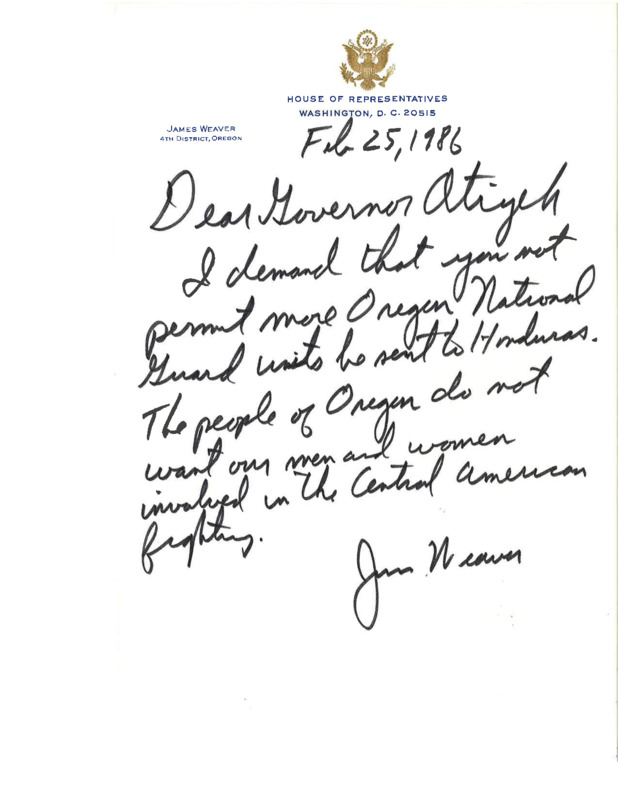 HOUSE OF REPRESENTATIVES
WASHINGTON, D. C. 20515
JAMES WEAVER
4TH DISTRICT, OREGON
Feb 25, 1986
Dear Governor Atiyeh
I demand that you not
permit more Oregon National
Guard units be sent to Honduras.
The people of Oregon do not
want our men and women
involved in the Central American
fighting.
Jim Weaver